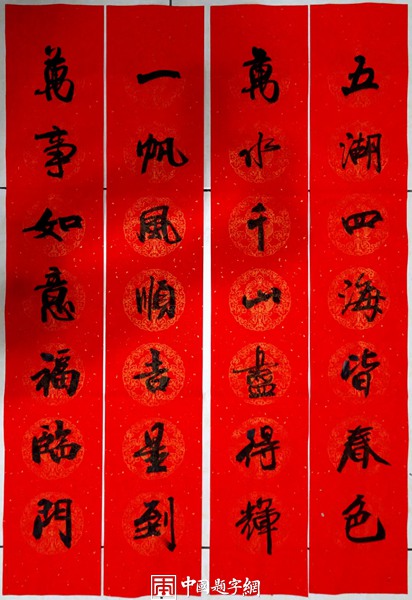 五湖四海皆春色
萬水千山盡得輝
一帆風順吉星到
萬事如意福臨門
中國題字網